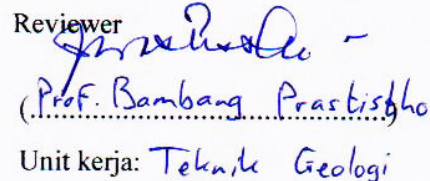 Reviewer
(Prof. Bambang Prastistho)
Unit kerja: Teknik Geologi